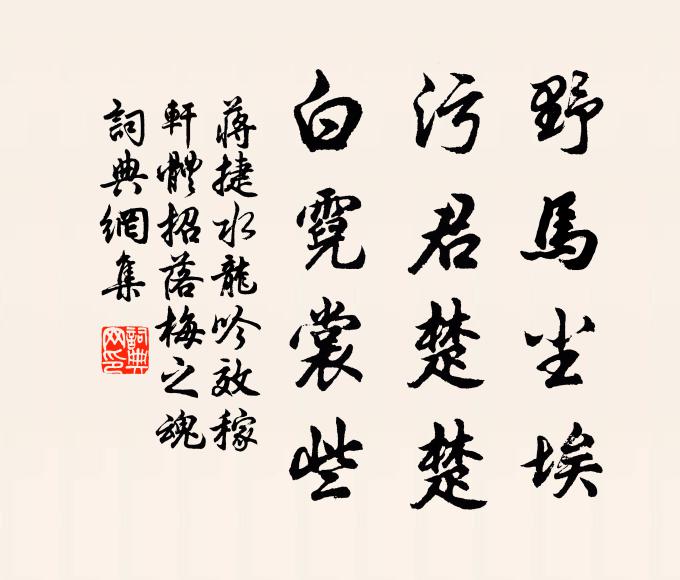 野馬尘埃
污君楚楚
白霓裳些
蔣捷水龍吟效稼
軒體招落梅之魂
詞典網集
詞典網印